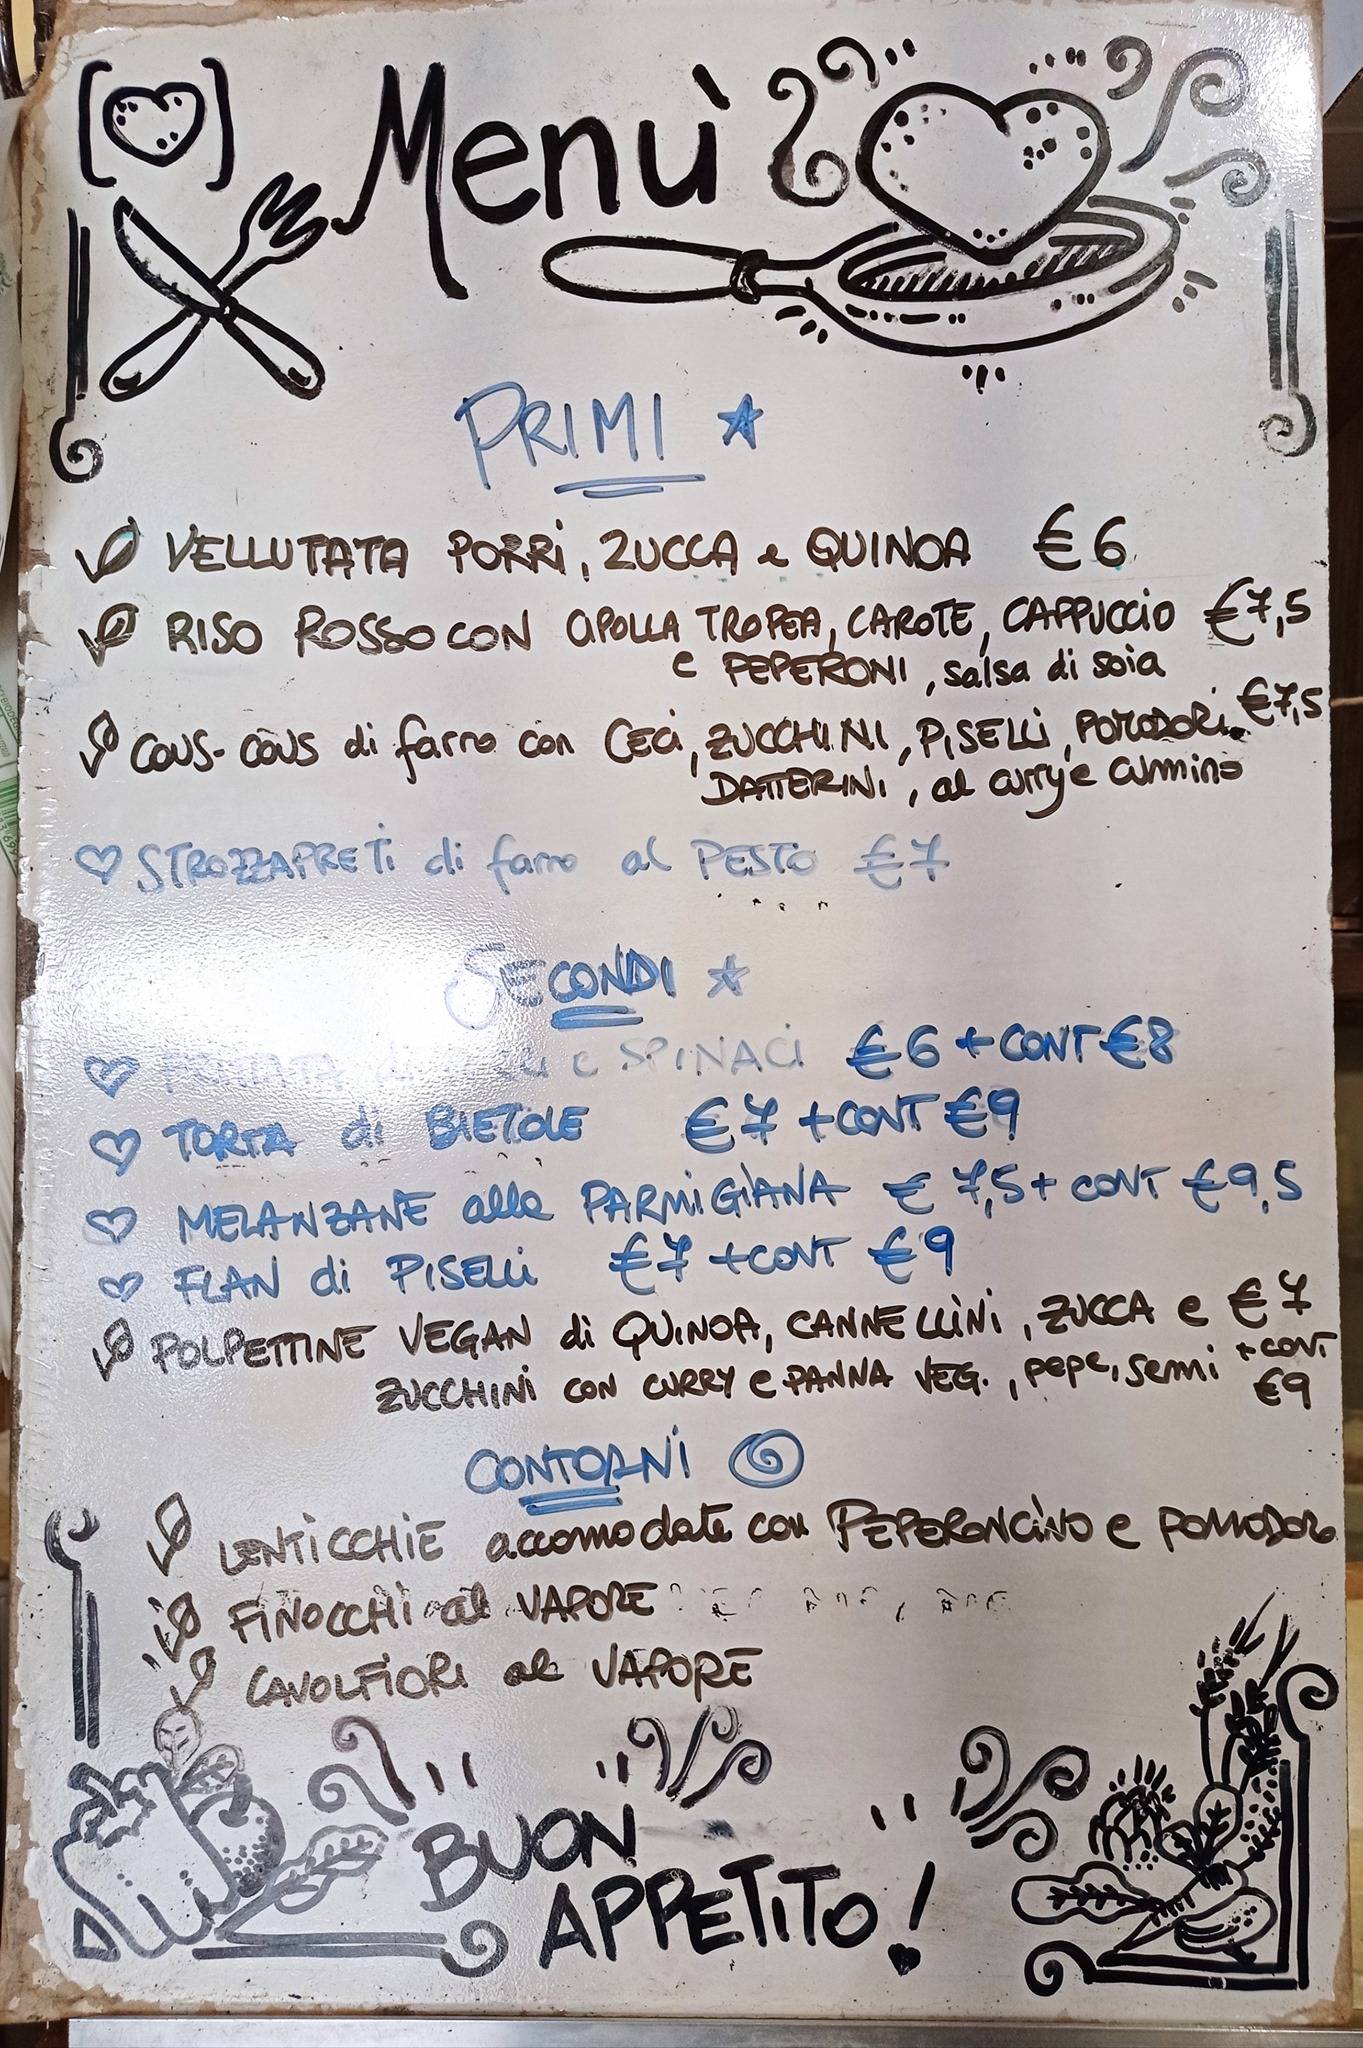 Menù
PRIMI
VELLUTATA PORRI, ZUCCA e QUINOA €6
RISO ROSSO CON CIPOLLA TROPEA, CAROTE, CAPPUCCIO €7,5
e PEPERONI, salsa di soia
COUS-COUS di farro con CECI, ZUCCHINI, PISELLI, POMODORI €7,5
DATTERINI, al curry e cumino
STROZZAPRETI di farro al PESTO €7
SECONDI
di e SPINACI €6 + CONT €8
TORTA di BIETOLE €7 + CONT €9
MELANZANE alla PARMIGIANA €7,5 + CONT €9,5
FLAN di PISELLI €7 + CONT €9
POLPETTINE VEGAN di QUINOA, CANNELLINI, ZUCCA e €7
ZUCCHINI CON CURRY e PANNA VEG., pepe, semi + CONT
€9
CONTORNI
LENTICCHIE accomodate con PEPERONCINO e POMODORO
FINOCCHI al VAPORE
CAVOLFIORI al VAPORE
BUON
APPETITO!